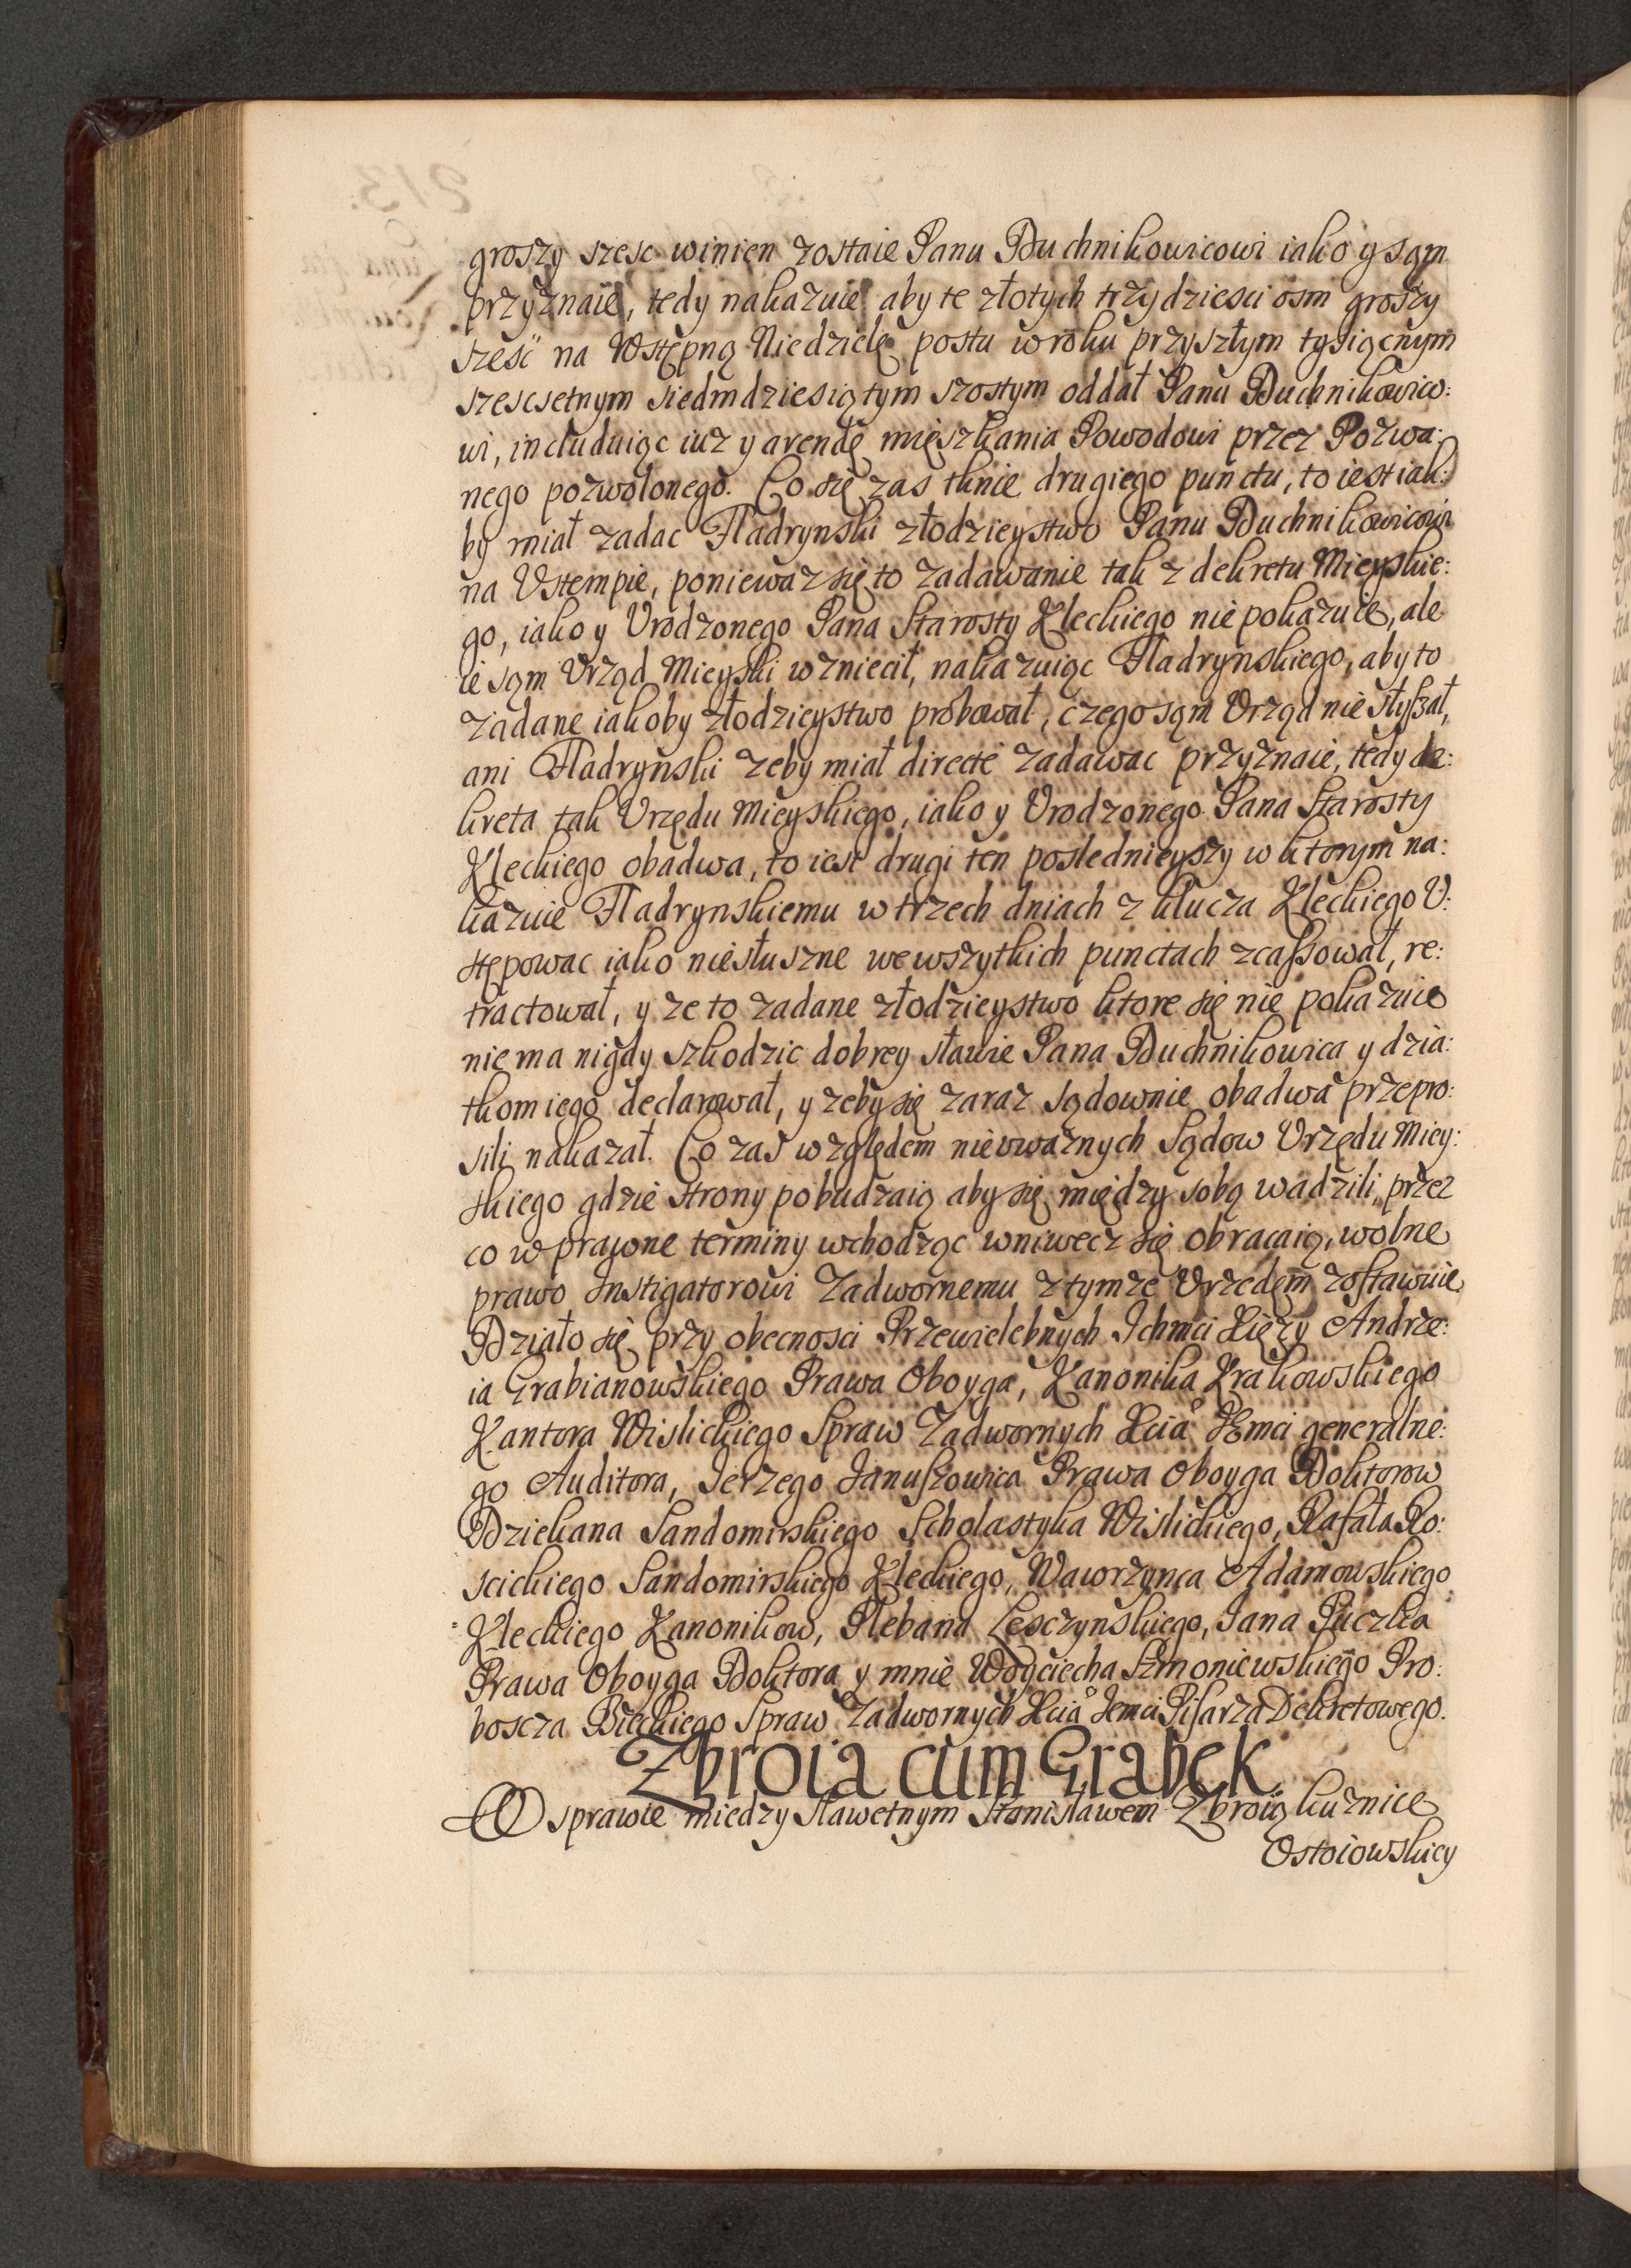 groszy szesc winien zostaie Panu Duchnikowicowi iako y sąm
przyznaie, tedy nakazuie aby te złotych trzydziesci osm groszy
sześć na Wstępną Niedzielę postu w roku przyszłym tysiącnym
szescsetnym siedmdziesiątym szostym oddał Panu Duchnikowico:
wi, includuiąc iuz y arendę mięszkania Powodowi przez Pozwa:
nego pozwolonego. Co się zas tknie drugiego punctu, to iest iak:
by miał zadac Fladrynski złodzieystwo Panu Duchnikowicowi
na Vstempie, poniewaz się to zadawanie tak z dekretu Mieyskie:
go, iako y Vrodzonego Pana Starosty Kleckiego nie pokazuie, ale
ie sąm Vrząd Mieyski wzniecił, nakazuiąc Fladrynskiego, aby to
zadane iakoby złodzieystwo probował, czego sąm Vrząd nie słyszał,
ani Fladrynski zeby miał directe zadawac przyznaie, tedy de:
kreta tak Vrzędu Mieyskiego, iako y Vrodzonego Pana Starosty
Kleckiego obadwa, to iest drugi ten poslednieyszy w ktorym na:
kazuie Fladrynskiemu w trzech dniach z klucza Kleckiego V:
stępowac iako niesłuszne we wszytkich punctach zcassował, re:
tractował, y ze to zadane złodzieystwo ktore się nie pokazuie
nie ma nigdy szkodzic dobrey sławie Pana Duchnikowica y dzia:
tkom iego declarował, y zeby się zaraz sądownie obadwa przepro:
sili nakazał. Co zas względem nieuwaznych Sądow Vrzędu Miey:
skiego gdzie strony pobudzaią aby się między sobą wadzili, przez
co w prawne terminy wchodząc wniwecz się obracaią, wolne
prawo Instigatorowi Zadwornemu z tymze Vrzędem zostawuie
Działo się przy obecnosci Przewielebnych Ichmci Xięzy Andrze:
ia Grabianowskiego Prawa Oboyga, Kanonika Krakowskiego
Kantora Wislickiego Spraw Zadwornych Xcia Jemci generalne:
go Auditora, Jerzego Januszowica Prawa Oboyga Doktorow
Dziekana Sandomirskiego Scholastyka Wislickiego, Rafała Ro:
scickiego Sandomirskiego Kleckiego, Wawrzynca Adamowskiego
Kleckiego Kanonikow, Plebana Lesczynskiego, Jana Puczka
Prawa Oboyga Doktora y mnie Woyciecha Szmoniewskiego Pro:
boscza Bieckiego Spraw Zadwornych Xcia Jemci Pisarza Dekretowego.
Zbroia cum Grabek
W sprawie miedzy Sławetnym Stanisławem Zbroią kuznice
Ostoiowskiey